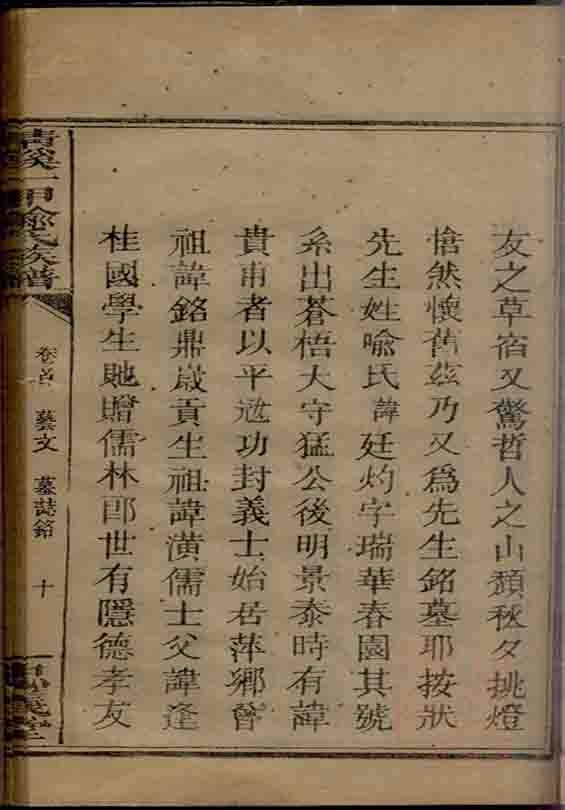 友之草宿又驚哲人之山頹秋夕挑燈
愴然懷舊茲乃又為先生銘墓耶按狀
先生姓喻氏諱廷灼字瑞華春園其號
系出蒼梧太守猛公後明景泰時有諱
貴甫者以平逆功封義士始居萍鄉曾
祖諱銘鼎歲貢生祖諱潢儒士父諱逢
桂國學生貤贈儒林郎世有隱德孝友
清溪一甲喻氏族譜
卷首 藝文 墓誌銘 十